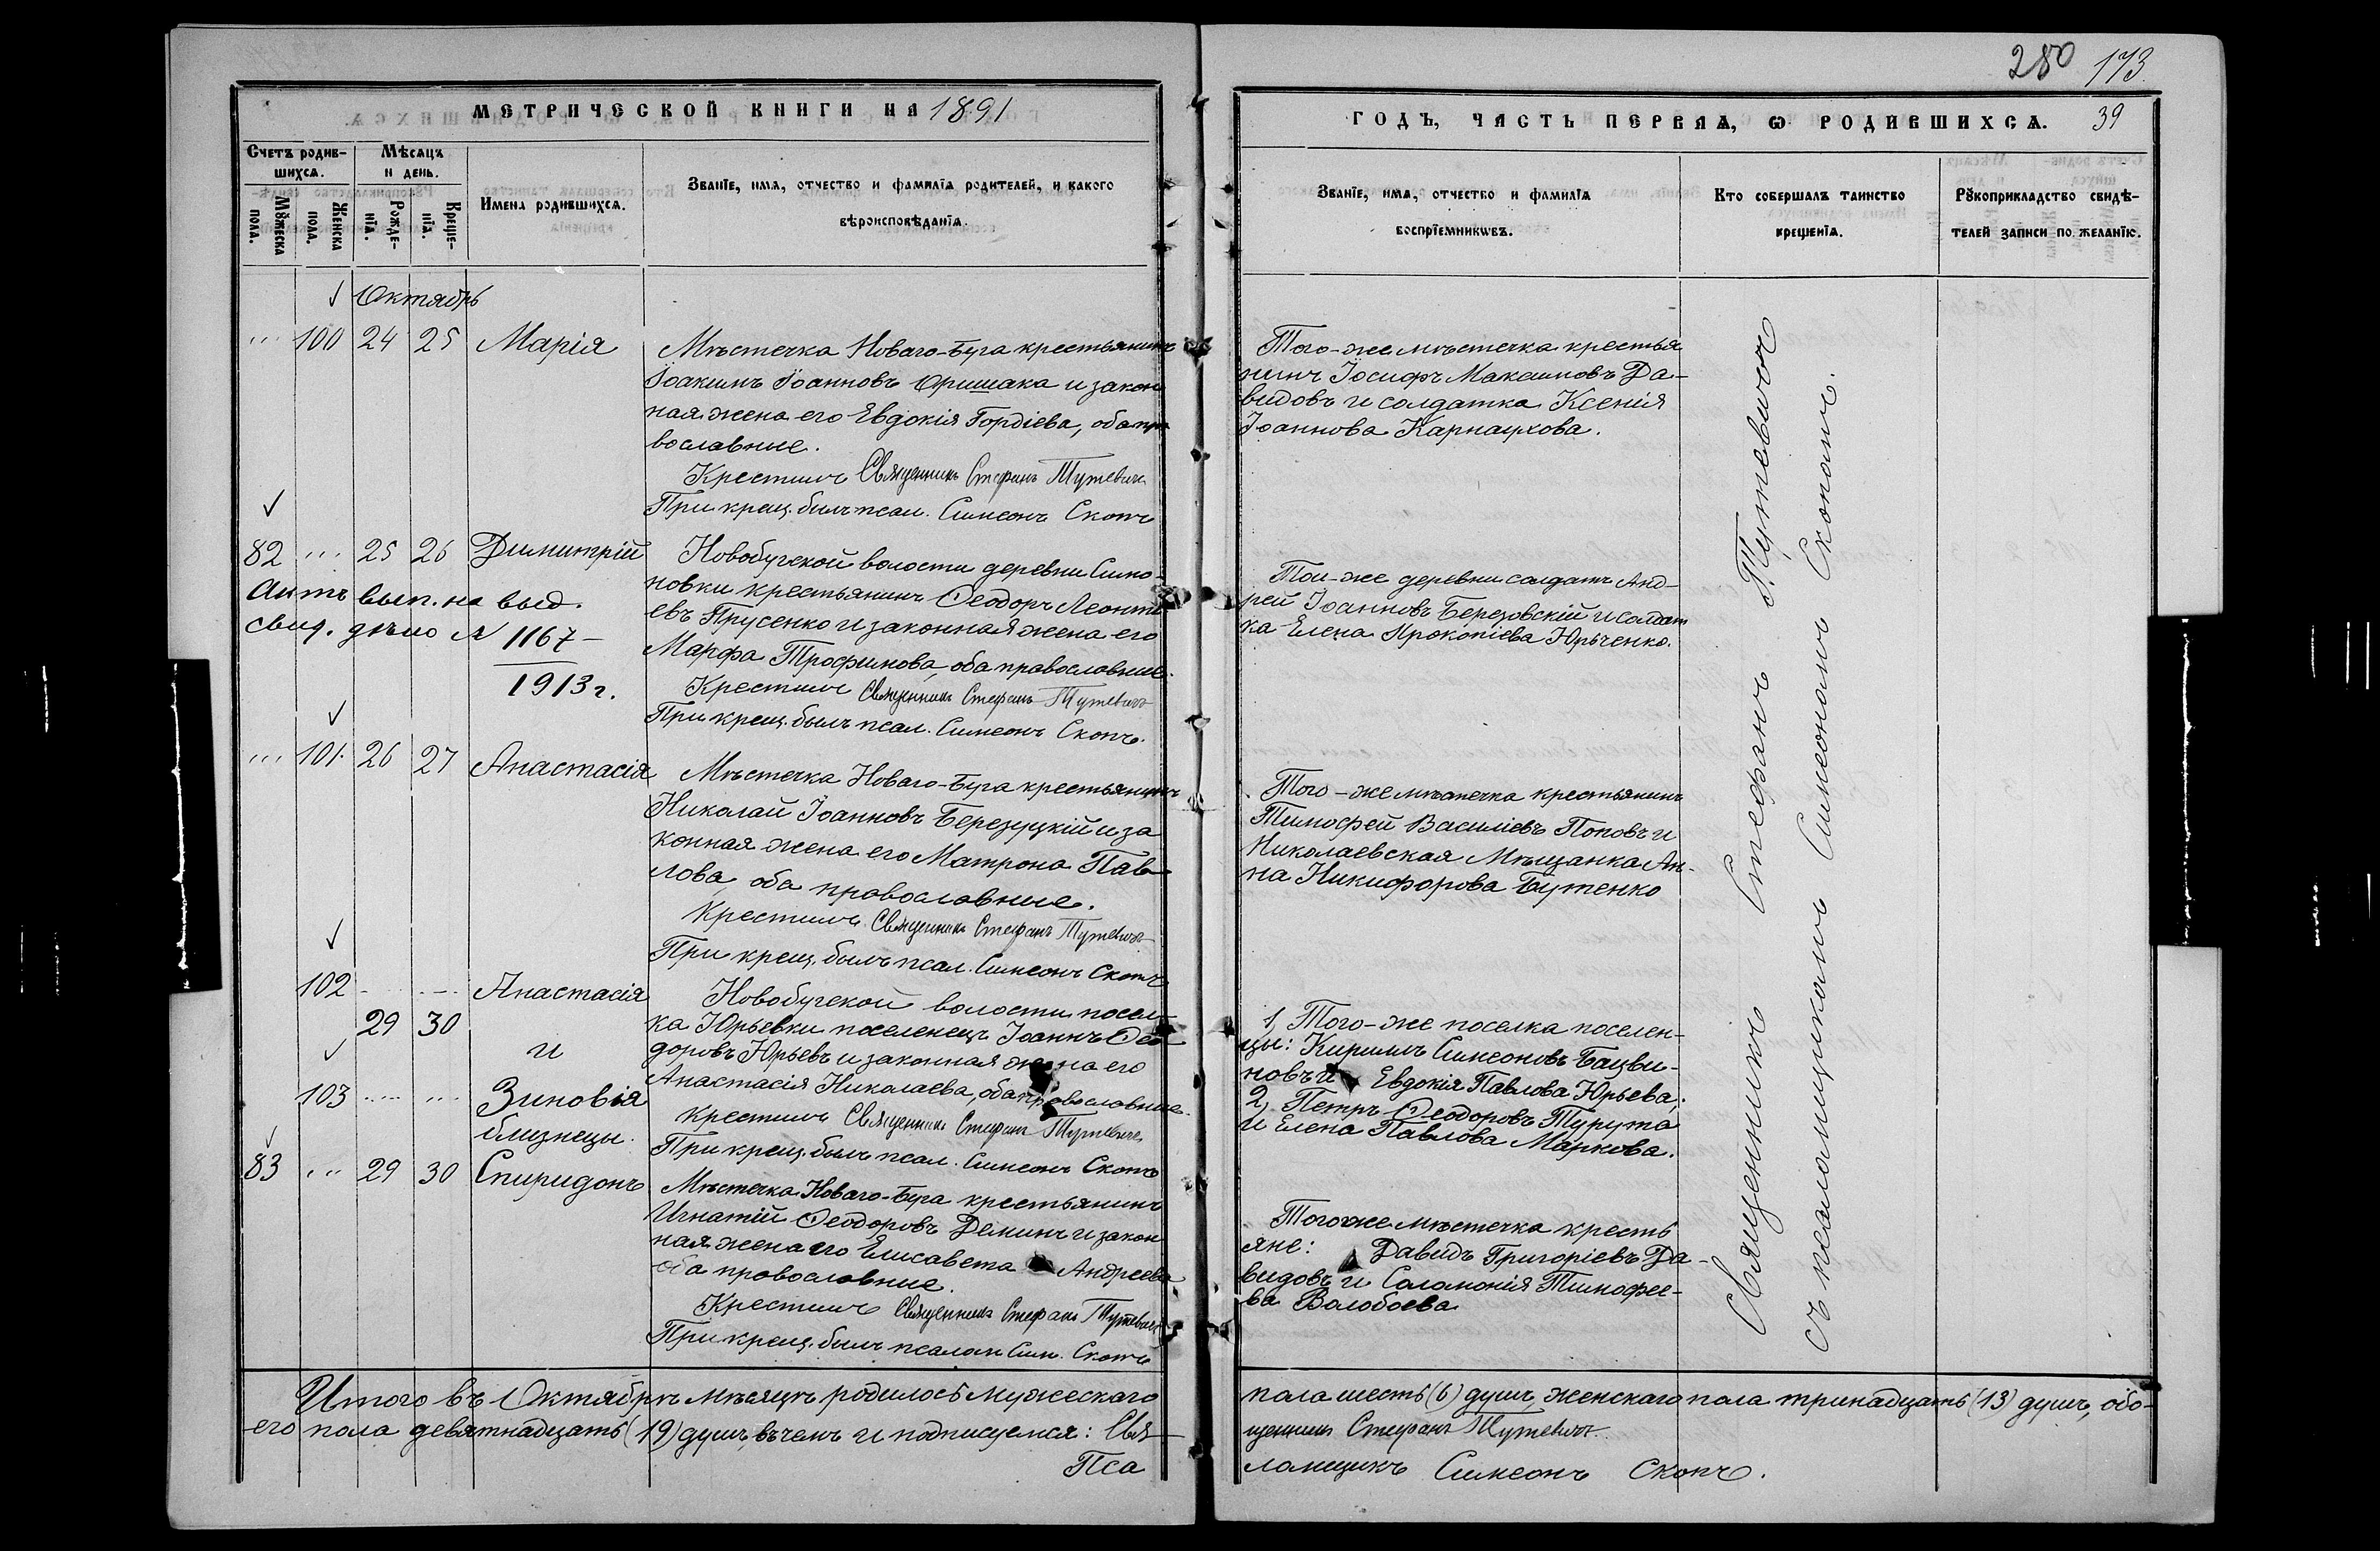 280 173
МЕТРИЧЕСКОЙ КНИГИ НА 1891
ГОДЪ, ЧАСТЬ ПЕРВАѦ, Ѡ РОДИВШИХСѦ. 39
Счетъ родив-
шихсѧ.
Мꙋжеска
пола.
Женска
пола.
Мѣсѧцъ
и день.
Рожде-
нїѧ.
Креще-
нїѧ.
Имена родившихсѧ.
Званїе, имѧ, отчество и фамилїѧ родителей, и какого
вѣроисповѣданїѧ.
Званїе, имѧ, отчество и фамилїѧ
воспрїемникѡвъ.
Кто совершалъ таинство
крещенїѧ.
Рꙋкоприкладство свидѣ-
телей записи по желанїю.
Октябрь
100 24 25 Марія
Мѣстечка Новаго-Буга крестьянинъ
Іоакимъ Іоанновъ Оришака и закон
ная жена его Евдокія Гордіева, оба пра
вославные.
Крестилъ Священникъ Стефанъ Путевичъ
При крещ. былъ псал. Симеонъ Скопъ
Того-же мѣстечка крестья
нинъ Іосифъ Максимовъ Да-
видовъ и солдатка Ксенія
Іоаннова Карнаухова.
82 25 26 Димитрій
Актъ вып. на выд.
свид. дѣло N 1167
1913 г.
Новобугской волости деревни Симо-
новки крестьянинъ Ѳеодоръ Леонті
евъ Прусенко и законная жена его
Марфа Трофимова, оба православные.
Крестилъ Священникъ Стефанъ Путевичъ
При крещ. былъ псал. Симеонъ Скопъ.
Той-же деревни солдатъ Анд-
рей Іоанновъ Березовскій и солдат
ка Елена Прокопіева Юрченко.
101. 26 27 Анастасія
Мѣстечка Новаго-Буга крестьянинъ
Николай Іоанновъ Березуцкій и за
конная жена его Матрона Пав
лова, оба православные.
Крестилъ Священникъ Стефанъ Путевичъ
При крещ. былъ псал. Симеонъ Скопъ
Того-же мѣстечка крестьянинъ
Тимофей Василіевъ Поповъ и
Николаевская Мѣщанка Ан-
на Никифорова Бутенко
102 Анастасія
29 30
и
103 Зиновія
близнецы.
Новобугской волости посел-
ка Юрьевки поселенецъ Іоаннъ Ѳео
доровъ Юрьевъ и законная жена его
Анастасія Николаева, оба православные.
Крестилъ Священникъ Стефанъ Путевичъ
При крещ. былъ псал. Симеонъ Скопъ
1, Того-же поселка поселен-
цы: Кириллъ Симеоновъ Бацви-
новъ и Евдокія Павлова Юрьева;
2, Петръ Ѳеодоровъ Турута
и Елена Павлова Маркова.
83 29 30 Спиридонъ
Мѣстечка Новаго-Буга крестьянинъ
Игнатій Ѳеодоровъ Деминъ и закон
ная жена его Елисавета Андреева
оба православные.
Крестилъ Священникъ Стефанъ Путевичъ
При крещ. былъ псалом Сим. Скопъ
Того же мѣстечка кресть
яне: Давидъ Григоріевъ Да-
видовъ и Соломонія Тимофее-
ва Волобоева
Священникъ Стефанъ Путевичъ
съ псаломщикомъ Симеономъ Скопомъ.
Итого въ Октябрѣ мѣсяцѣ родилось мужескаго пола шесть (6) душъ, женскаго пола тринадцать (13) душъ, обо-
его пола девятнадцать (19) душъ, въ чемъ и подписуемся: Свя щенникъ Стефанъ Путевичъ
Пса ломщикъ Симеонъ Скопъ.